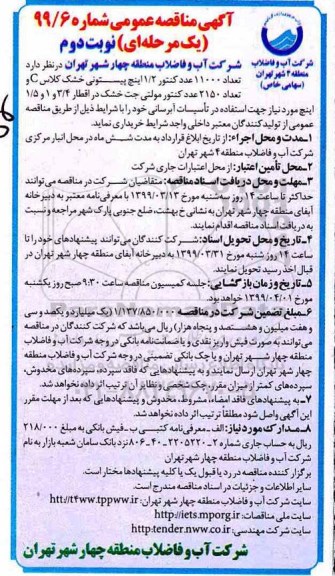 آگهی مناقصه عمومی شماره ۹۹/۶
(یک مرحله‌ای) نوبت دوم
شرکت آب و فاضلاب
منطقه ۴ شهر تهران
(سهامی خاص)
شرکت آب و فاضلاب منطقه چهار شهر تهران در نظر دارد
تعداد ۱۱۰۰۰ عدد کنتور ۱/۲ اینچ پیستونی خشک کلاس C و
تعداد ۲۱۵۰ عدد کنتور مولتی جت خشک در اقطار ۳/۴ و ۱ و ۱/۵
اینچ مورد نیاز جهت استفاده در تأسیسات آبرسانی خود را با شرایط ذیل از طریق مناقصه
عمومی از تولیدکنندگان معتبر داخلی واجد شرایط خریداری نماید.
۱-مدت و محل اجراء: از تاریخ ابلاغ قرارداد به مدت شش ماه در محل انبار مرکزی
شرکت آب و فاضلاب منطقه ۴ شهر تهران
۲-محل تأمین اعتبار: از محل اعتبارات جاری شرکت
۳-مهلت و محل دریافت اسناد مناقصه: متقاضیان شرکت در مناقصه می‌توانند
حداکثر تا ساعت ۱۹ روز سه‌شنبه مورخ ۱۳۹۹/۰۳/۱۳ با معرفی‌نامه معتبر به دبیرخانه
آبفای منطقه چهار شهر تهران به نشانی خ بهشت، ضلع جنوبی پارک شهر مراجعه و نسبت
به دریافت اسناد مناقصه اقدام نمایند.
۴-تاریخ و محل تحویل اسناد: شرکت کنندگان می‌توانند پیشنهادهای خود را تا
ساعت ۱۴ روز شنبه مورخ ۱۳۹۹/۰۳/۳۱ به دبیرخانه آبفای منطقه چهار شهر تهران در
قبال اخذ رسید تحویل نمایند.
۵-تاریخ و زمان بازگشایی: جلسه کمیسیون مناقصه ساعت ۹:۳۰ صبح روز یکشنبه
مورخ ۱۳۹۹/۰۴/۰۱ خواهد بود.
۶-مبلغ تضمین شرکت در مناقصه ۱/۱۳۷/۸۵۰/۰۰۰ (یک میلیارد و یکصد و سی
و هفت میلیون و هشتصد و پنجاه هزار) ریال می‌باشد که شرکت کنندگان در مناقصه
می‌توانند به صورت فیش واریز نقدی و یا ضمانت‌نامه بانکی در وجه شرکت آب و فاضلاب
منطقه چهار شهر تهران و یا چک بانکی تضمینی در وجه شرکت آب و فاضلاب منطقه
چهار شهر تهران ارسال نمایند و به پیشنهادهایی که فاقد سپرده، سپرده‌های مخدوش،
سپرده‌های کمتر از میزان مقرر، چک شخصی و نظایر آن ترتیب اثر داده نخواهد شد.
۷-به پیشنهادهای فاقد امضاء، مشروط، مخدوش و پیشنهادهایی که بعد از مهلت مقرر
این آگهی واصل شود مطلقا ترتیب اثر داده نخواهد شد.
۸-مدارک مورد نیاز: الف-معرفی‌نامه کتبی ب-فیش بانکی به مبلغ ۲۱۸/۰۰۰
ریال به حساب جاری شماره ۲-۲۲۰۵۲۲۰-۴۰-۸۰۶ نزد بانک سامان شعبه بازار به نام
شرکت آب و فاضلاب منطقه چهار شهر تهران
برگزار کننده مناقصه در رد یا قبول یک یا کلیه پیشنهادها مختار است.
سایر اطلاعات و جزئیات در اسناد مناقصه مندرج است.
سایت شرکت آب و فاضلاب منطقه چهار شهر تهران: htt://t4ww.tppww.ir
سایت ملی مناقصات: http://iets.mporg.ir
سایت شرکت مهندسی: http:tender.nww.co.ir
شرکت آب و فاضلاب منطقه چهار شهر تهران